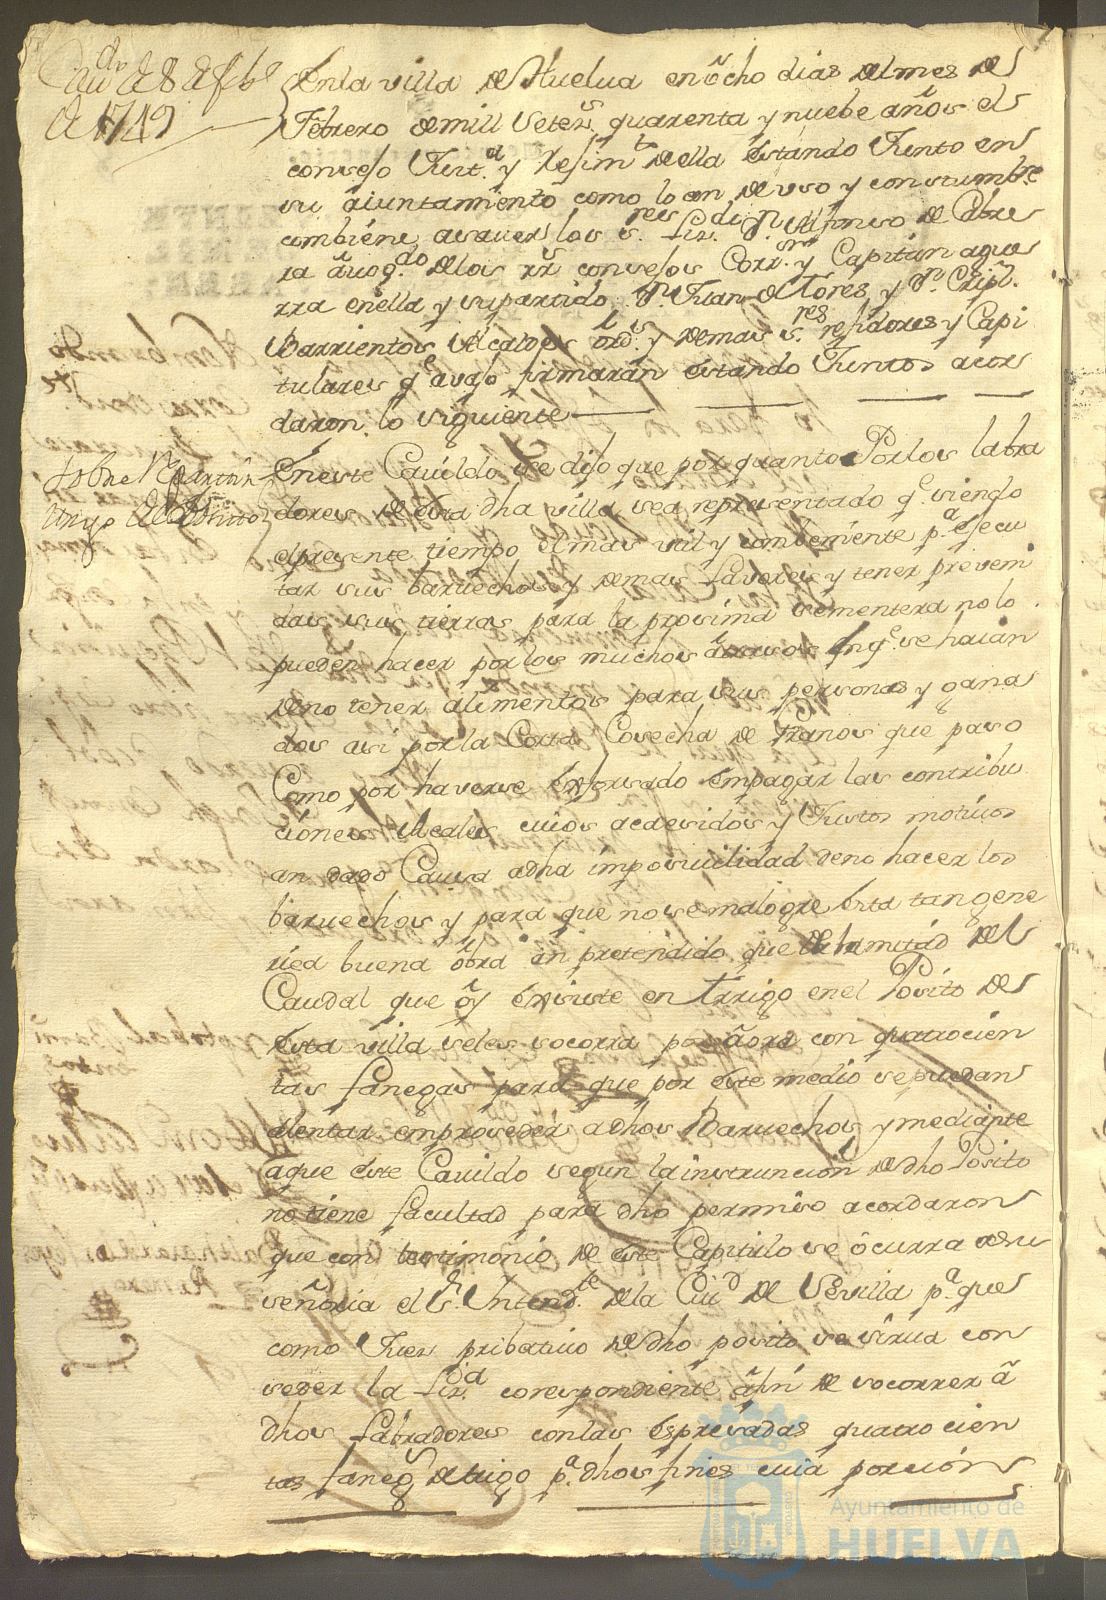 Cavdo de 8 de febo
de 1749
En la villa de Huelua en ôcho dias del mes de
Febrero de mill Setezs quarenta y nuebe años el
consejo Justa y Rejimto de ella estando Junto en
su aiuntamiento como lo an de uso y constumbre
combiene asauer los sres Lizdo Dn Alfonso de Cabre
ra auogdo de los Rs consejos Corrr y Capitan a gue
rra en ella y su partido Dn Juan de Tores y Dn Cripl
Barrientos Alcaldes ordis y demas sres rejidores y Capi
tulares qe auajo firmarán estando Juntos acor
daron lo siguiente
Sobre Repartir
trigo del Posito
En este Cauildo se dijo que por quanto Por los labra
dores de esta dha villa sea representado qe siendo
el presente tiempo el mas util y combeniente pa ejecu
tar sus baruechos y demas lavores y tener preveni
das sus tierras para la procima sementera no lo
pueden hacer por los muchos atrasos en qe se haian
de no tener alimentos para sus personas y gana
dos asi por la Corta Cosecha de granos que paso
Como por haverse esforsado em pagar las contribu
ciones Reales cuios acaesidos y Justos motiuos
an dado Causa a dha imposiuilidad de no hacer los
baruechos y para que no se malogre esta tan gene
rica buena obra an pretendido que de la mitad del
Caudal que oy existe en trigo en el Posito de
esta villa se les socorra por aôra con quatrocien
tas fanegas para que por este medio se puedan
alentar em proveder a dhos Baruechos y mediante
a que este Cauildo segun la instruncion de dho Posito
no tiene facultad para dho permiso acordaron
que con testimonio de este Capitulo se ocurra a su
señoria el Sr Intendte de la Ciud de Sevilla pa que
como Juez pribatiuo de dho posito se sirua con
seder la Lizda corespondiente a fin de socorrer a
dhos labradores con las espresadas quatrocien
tas fanegs de trigo pa dhos fines cuia porcion
Ayuntamiento de
HUELVA